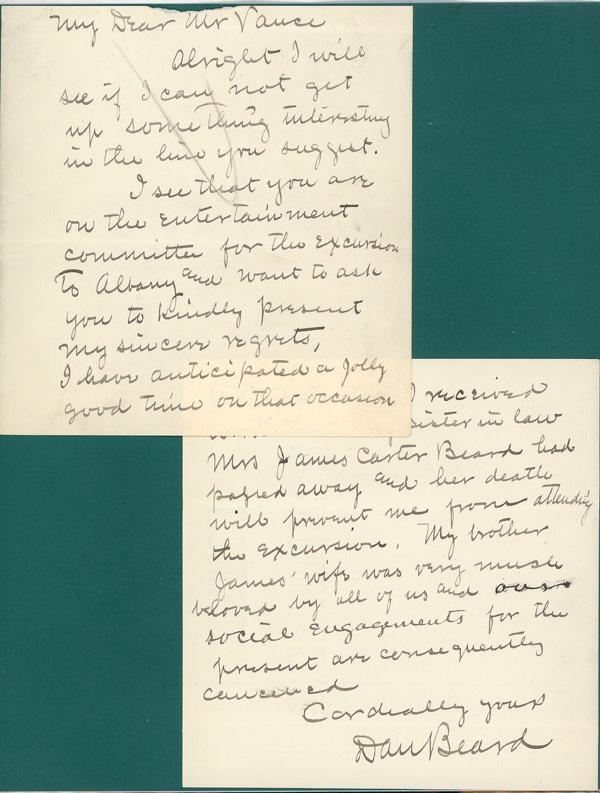 My Dear Mr Vance
Alright I will
see if I can not get
up something interesting
in the line you suggest.
I see that you are
on the entertainment
committee for the excursion
To Albany and want to ask
you to kindly present
my sincere regrets,
I have anticipated a Jolly
good time on that occasion
I received
sister in law
Mrs James Carter Beard had
passed away and her death
will prevent me from attending
the excursion. My brother
James' wife was very much
beloved by all of us and our
social engagements for the
present are consequently
cancelled
Cordially yours
Dan Beard